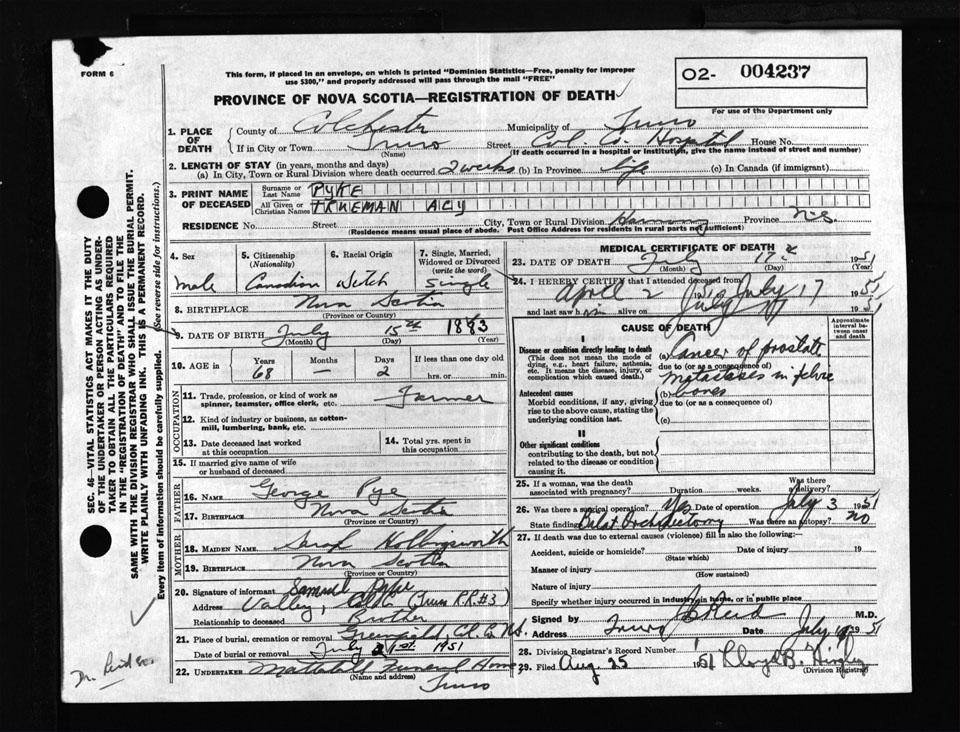 FORM 6
This form, if placed in an envelope, on which is printed "Dominion Statistics—Free, penalty for improper
use $300," and properly addressed will pass through the mail "FREE"
O2- 004237
For use of the Department only
PROVINCE OF NOVA SCOTIA—REGISTRATION OF DEATH
1. PLACE OF DEATH
County of Colchester Municipality of Truro
If in City or Town Truro Street Col. Co. Hospital House No.
(Name) (If death occurred in a hospital or institution, give the name instead of street and number)
2. LENGTH OF STAY (in years, months and days)
(a) In City, Town or Rural Division where death occurred 2 weeks (b) In Province life (c) In Canada (if immigrant)
3. PRINT NAME OF DECEASED
Surname or Last Name PYKE
All Given or Christian Names TRUEMAN ACY
RESIDENCE No. Street City, Town or Rural Division Province N.S.
(Residence means usual place of abode. Post Office Address for residents in rural parts not sufficient)
4. Sex male
5. Citizenship (Nationality) Canadian
6. Racial Origin
7. Single, Married, Widowed or Divorced (write the word) Single
8. BIRTHPLACE Nova Scotia
(Province or Country)
9. DATE OF BIRTH July 15th 1883
(Month) (Day) (Year)
10. AGE in Years 68 Months Days 2 If less than one day old
hrs. or min.
OCCUPATION
11. Trade, profession, or kind of work as Farmer
spinner, teamster, office clerk, etc.
12. Kind of industry or business, as cotton-
mill, lumbering, bank, etc.
13. Date deceased last worked
at this occupation
14. Total yrs. spent in
this occupation
15. If married give name of wife
or husband of deceased
FATHER
16. NAME George Pye
17. BIRTHPLACE Nova Scotia
(Province or Country)
MOTHER
18. MAIDEN NAME Hollingsworth
19. BIRTHPLACE Nova Scotia
(Province or Country)
20. Signature of informant Samuel Pyke
Address Valley, Col. Co. (Truro R.R.#3)
Relationship to deceased Brother
21. Place of burial, cremation or removal Greenfield, Col. Co. N.S.
Date of burial or removal July 21st. 1951
22. UNDERTAKER Mattatall Funeral Home
(Name and address) Truro
MEDICAL CERTIFICATE OF DEATH
23. DATE OF DEATH July 17th 1951
(Month) (Day) (Year)
24. I HEREBY CERTIFY that I attended deceased from
April 2 1951 to July 17 1951
and last saw him alive on July 17 1951
CAUSE OF DEATH
Approximate interval between onset and death
I
Disease or condition directly leading to death
(This does not mean the mode of
dying, e.g., heart failure, asthenia,
etc. It means the disease, injury, or
complication which caused death.)
(a) Cancer of prostate
due to (or as a consequence of)
metastases in pelvic
(b) bones
Antecedent causes
Morbid conditions, if any, giving
rise to the above cause, stating the
underlying condition last.
due to (or as a consequence of)
(c)
II
Other significant conditions
contributing to the death, but not
related to the disease or condition
causing it.
25. If a woman, was the death
associated with pregnancy? Duration weeks. Was there delivery?
26. Was there a surgical operation? Yes Date of operation July 3 1951
State findings Bilat Orchidectomy Was there an autopsy? no
27. If death was due to external causes (violence) fill in also the following:—
Accident, suicide or homicide? Date of injury 19
(State which)
Manner of injury
(How sustained)
Nature of injury
Specify whether injury occurred in industry, in home, or in public place
Signed by Reid M.D.
Address Truro Date July 1951
28. Division Registrar's Record Number
29. Filed Aug 25 1951 Lloyd B.
(Division Registrar)
SEC. 46—VITAL STATISTICS ACT MAKES IT THE DUTY
OF THE UNDERTAKER OR PERSON ACTING AS UNDER-
TAKER TO OBTAIN ALL THE PARTICULARS REQUIRED
IN THE "REGISTRATION OF DEATH" AND TO FILE THE
SAME WITH THE DIVISION REGISTRAR WHO SHALL ISSUE THE BURIAL PERMIT.
WRITE PLAINLY WITH UNFADING INK. THIS IS A PERMANENT RECORD.
Every item of information should be carefully supplied. (See reverse side for instructions.)